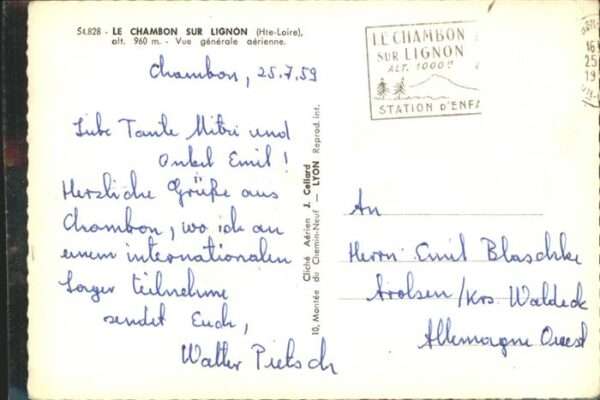 St.828 - LE CHAMBON SUR LIGNON (Hte-Loire),
alt. 960 m. - Vue générale aérienne.
Chambon, 25.7.59
Liebe Tante Mitzi und
Onkel Emil!
Herzliche Grüße aus
Chambon, wo ich an
einem internationalen
Lager teilnehme
sendet Euch,
Walter Pietsch
10, Montée du Chemin-Neuf — LYON Reprod. int.
Cliché Aérien J. Cellard
LE CHAMBON
SUR LIGNON
ALT. 1000m
STATION D'ENFA
16
25
19
An
Herrn Emil Blaschke
Arolsen/Krs Waldeck
Allemagne Ouest